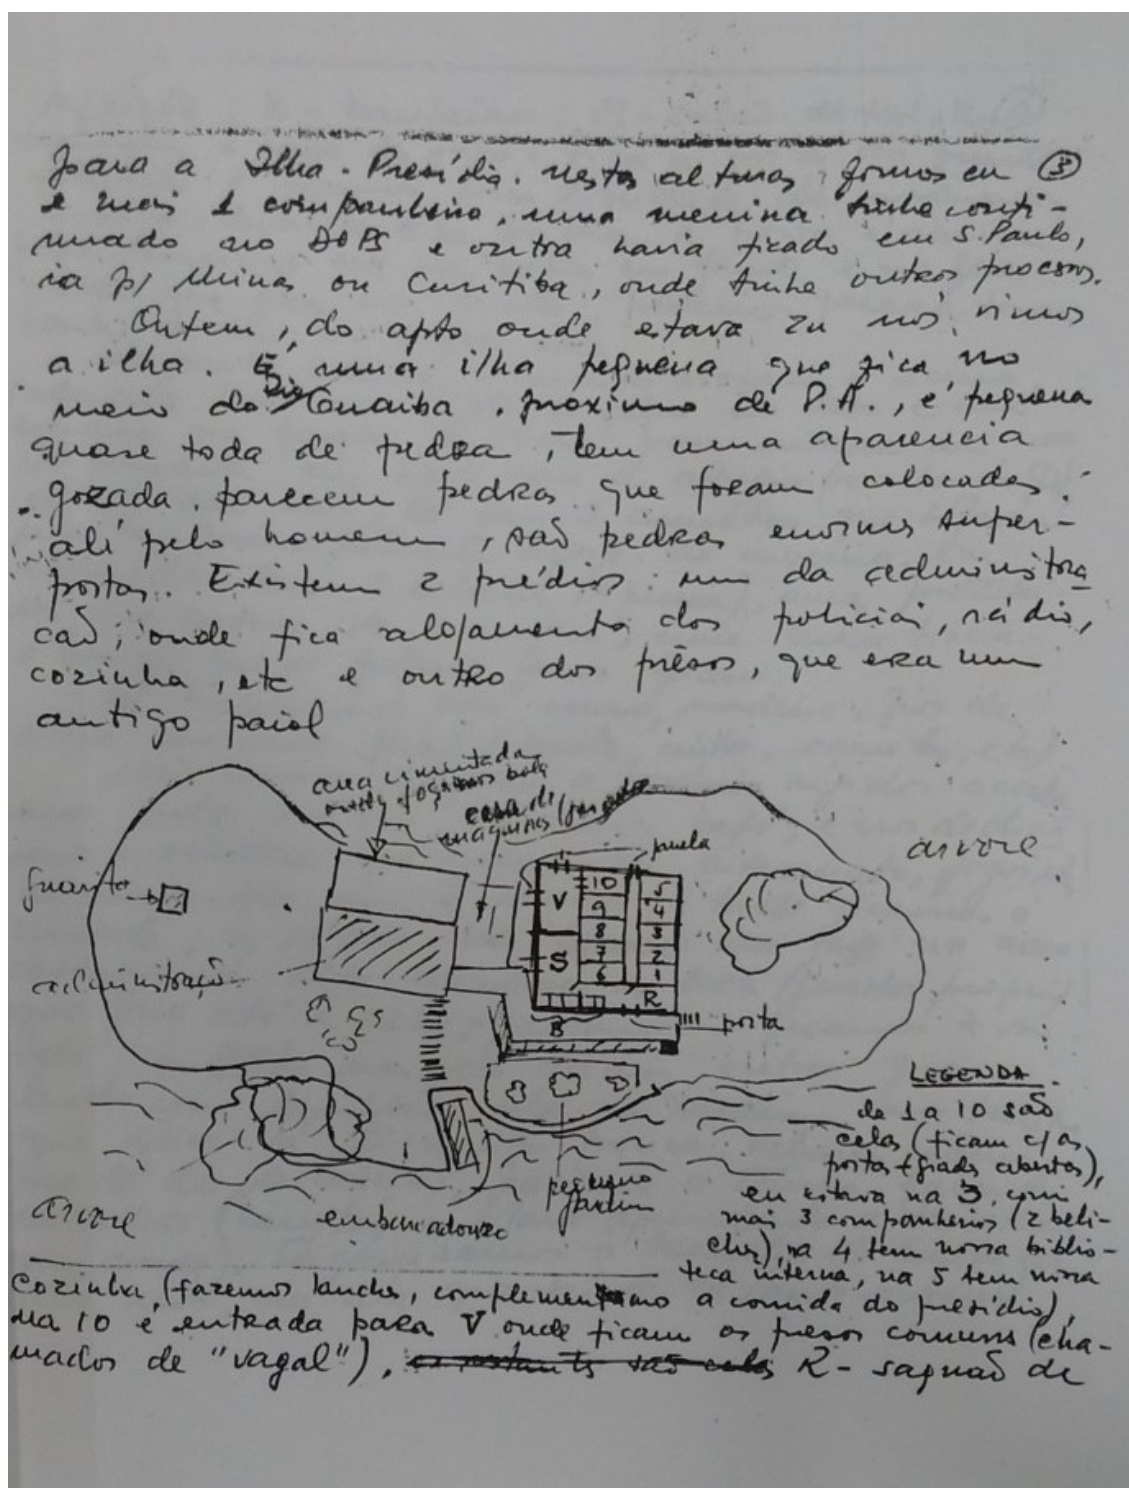 para a Ilha-Presídio. nestas alturas fomos eu ③
e mais 1 companheiro, uma menina tinha conti-
nuado no DOPS e outra havia ficado em S. Paulo,
ia p/ Minas ou Curitiba, onde tinha outros processos.
Ontem, do apto onde estava nós vimos
a ilha. É uma ilha pequena que fica no
meio do Rio Guaiba, próximo de P.A., é pequena
quase toda de pedra, tem uma aparencia
gozada, parecem pedras que foram colocadas
ali pelo homem, são pedras enormes super-
postas. Existem 2 prédios: um da administra
ção, onde fica alojamento dos policiai, rádio,
cozinha, etc e outro dos prêsos, que era um
antigo paiol
area cimentada
onde jogamos bola
casa de
maquinas
janela
arvore
guarita
V
10
9
8
7
6
5
4
3
2
1
S
R
administração
B
porta
LEGENDA
de 1 a 10 são
celas (ficam c/ as
portas + grades abertas),
eu estava na 3, com
mais 3 companheiros (2 beli-
ches), na 4 tem nossa biblio-
teca interna, na 5 tem nossa
pequeno
jardim
arvore
embarcadouro
cozinha, (fazemos lanches, complementamo a comida do presídio),
na 10 é entrada para V onde ficam os presos comuns (cha-
mados de "vagal"), R - saguão de